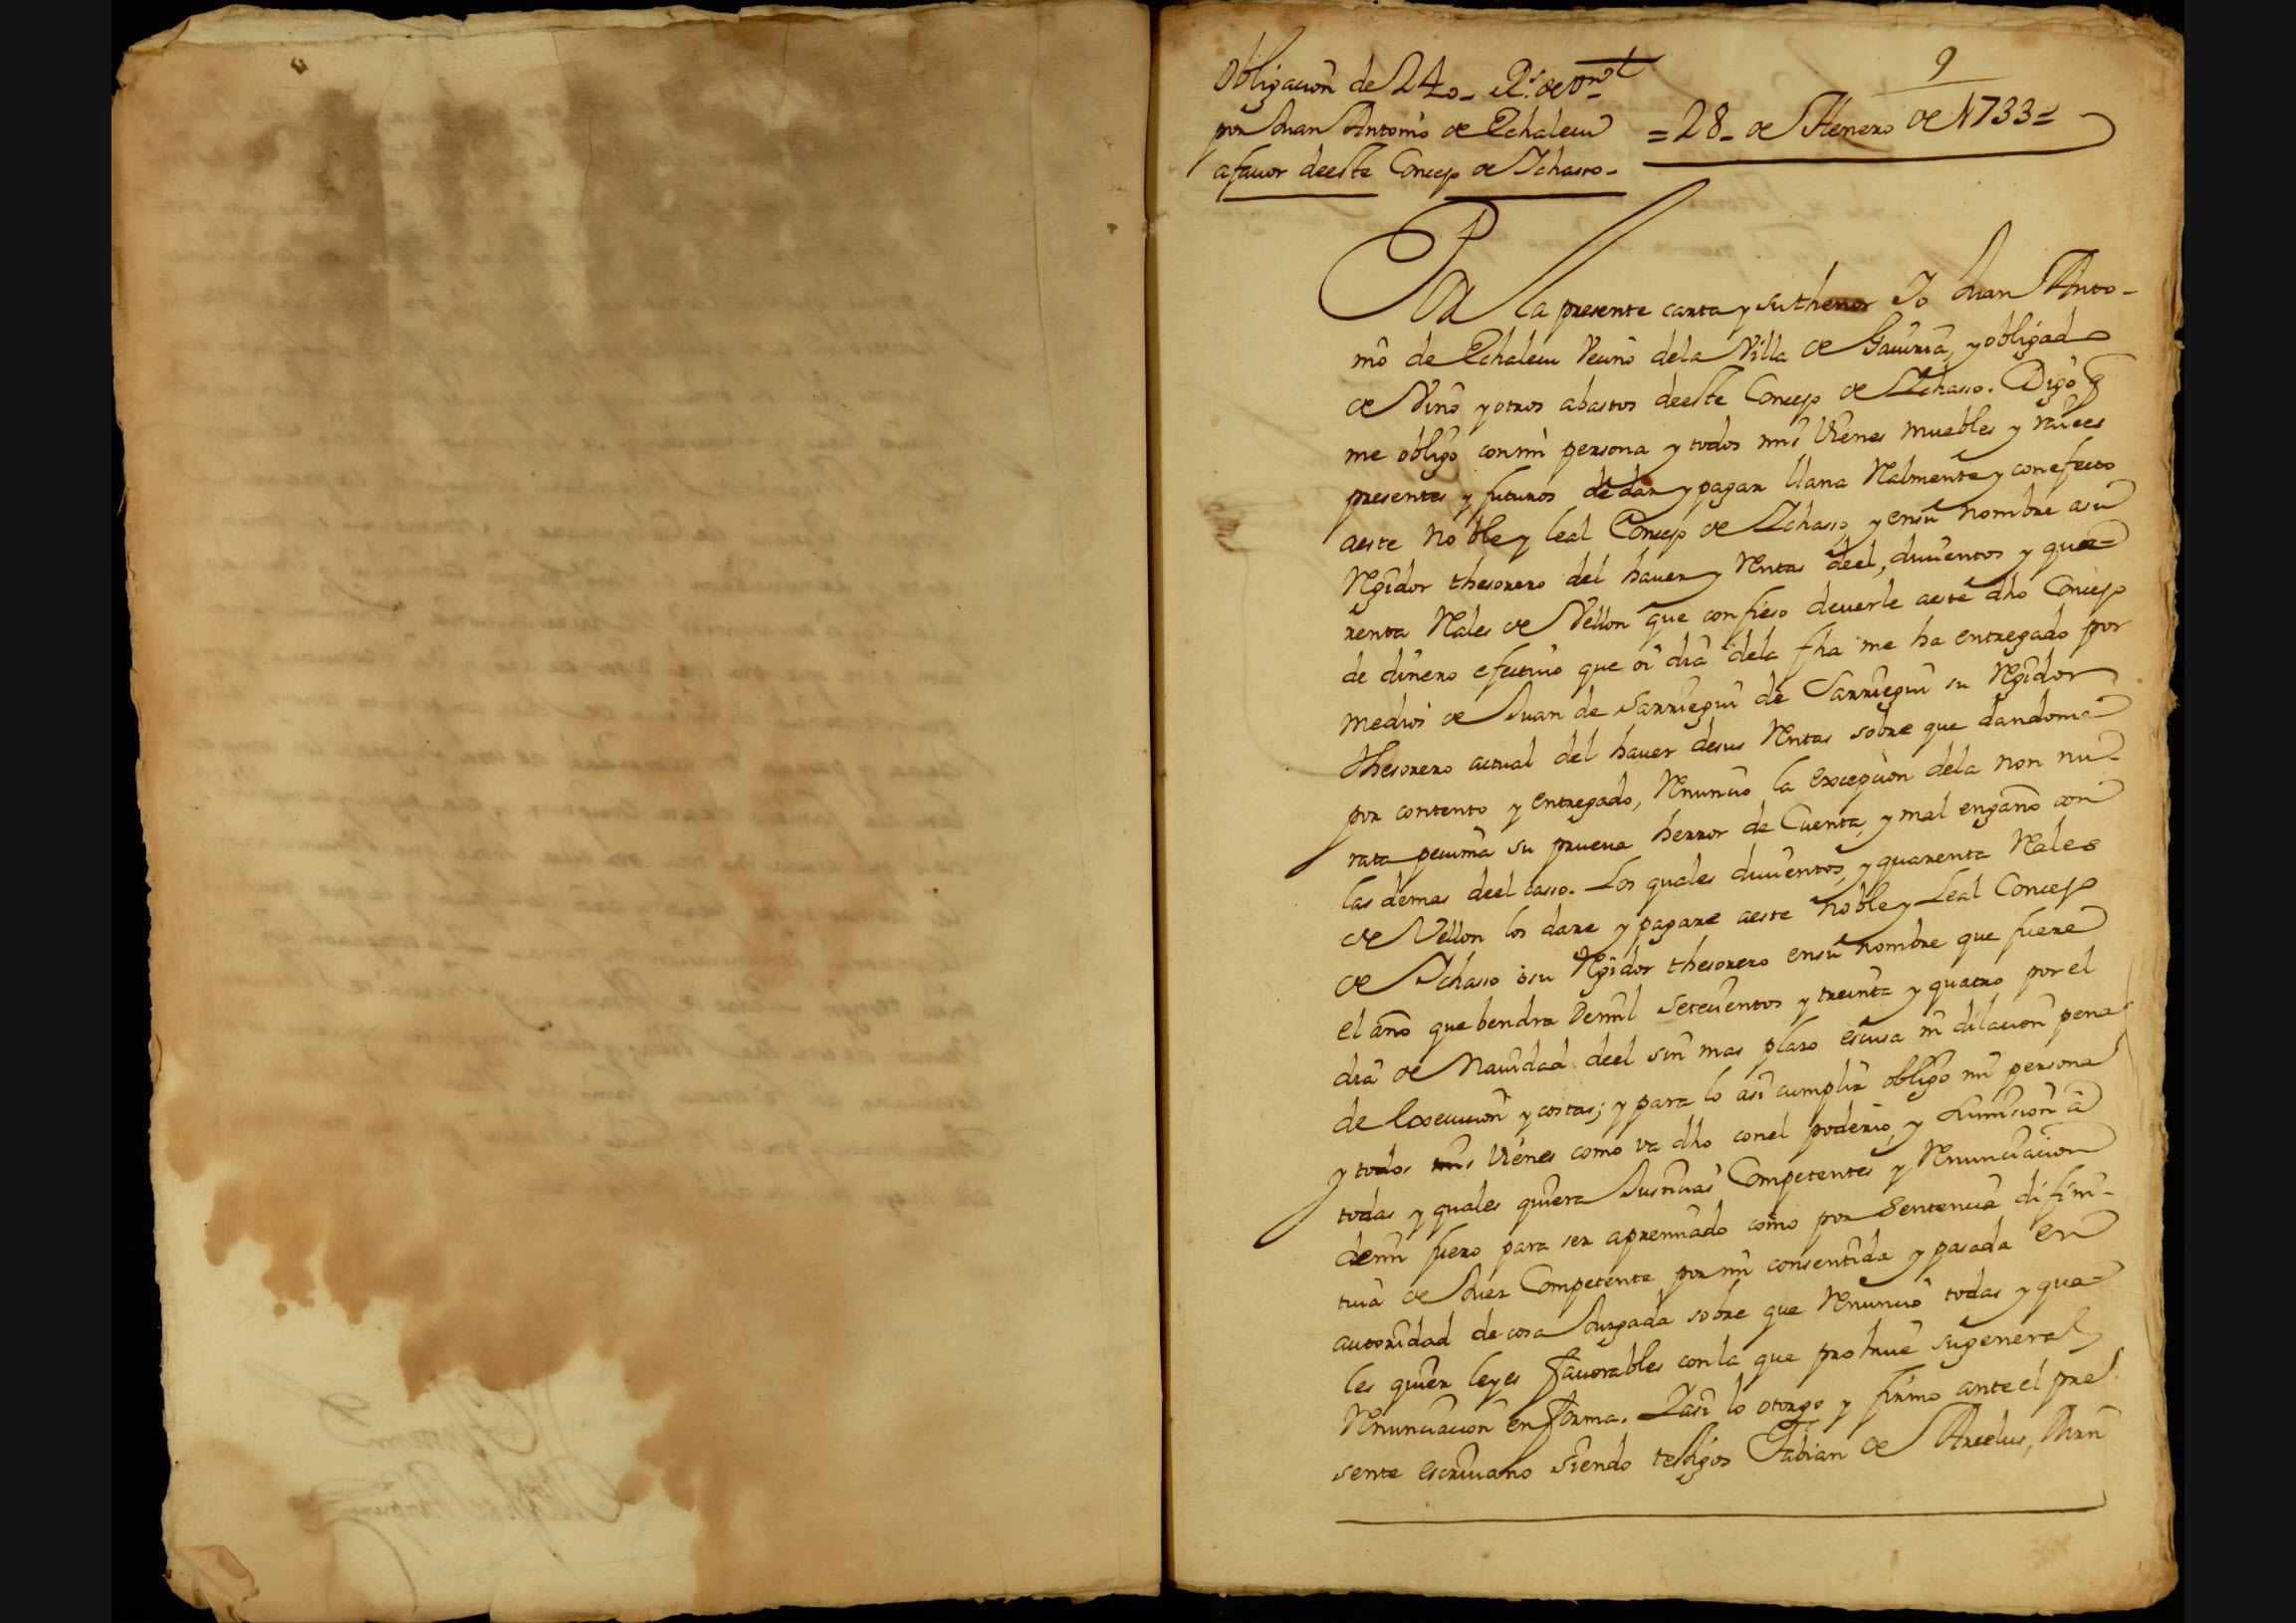 9
Obligacion de 240- Rs. de Vn
por Juan Antonio de Echalecu
a fauor deeste Concejo de Ichasso-
=28- de Henero de 1733=
Por la presente carta y su thenor Yo Juan Anto-
nio de Echalecu Vecino dela Villa de Gauiria, y obligado
de Vino y otros abastos deeste Concejo de Ichasso. Digo q
me obligo conmi persona y todos mis Vienes muebles y raices
presentes y futuros de dar y pagar llana Realmente y conefecto
aeste Noble y leal Concejo de Ichasso, y ensu nombre asu
Regidor thesorero del hauer y Rentas deel, ducientos y qua-
renta Reales de Vellon que confieso deuerle aeste dho Concejo
de dinero efectiuo que oi dia dela fha me ha entregado por
medio de Juan de Sarriegui de Sarriegui su Regidor
thesorero actual del hauer desus Rentas sobre que dandome
por contento y entregado, Renuncio la excepcion dela non nu-
rata pecunia su prueua herror de Cuenta, y mal engaño con
las demas deel casso. Los quales ducientos, y quarenta Reales
de Vellon los dare y pagare aeste Noble y Leal Concejo
de Ichasso o su Regidor thesorero ensu nombre que fuere
el año que bendra demil setecientos y treinta y quatro por el
dia de Nauidad deel sin mas plazo escusa ni dilacion pena
de execucion y costas; y para lo asi cumplir obligo mi persona
y todos mis Vienes como va dho conel poderio, y sumision a
todas y quales quiera Justicias Competentes y Renunciacion
demi fuero para ser apremiado como por sentencia difini-
tiua de Juez Competente por mi consentida y pasada en
autoridad de cosa Juzgada sobre que Renuncio todas y qua-
les quier leyes fauorables conla que prohiue su general
Renunciacion en forma. Y asi lo otorgo y firmo ante el pre-
sente escriuano siendo testigos Fabian de Arcelus,